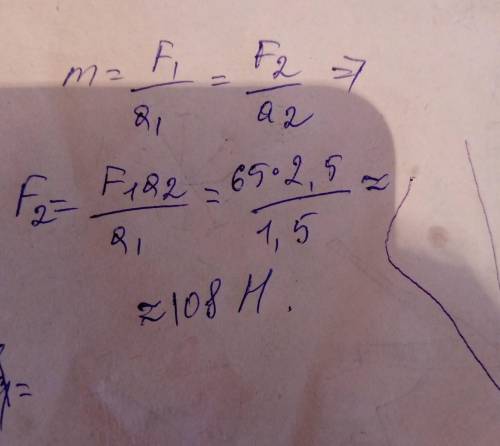 m = F₁/a₁ = F₂/a₂ ⇒
F₂ = F₁a₂/a₁ = 65·2,5/1,5 ≈
≈ 108 Н.